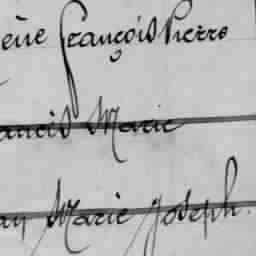 ène François Pierre
ancis Marie
an Marie Joseph.